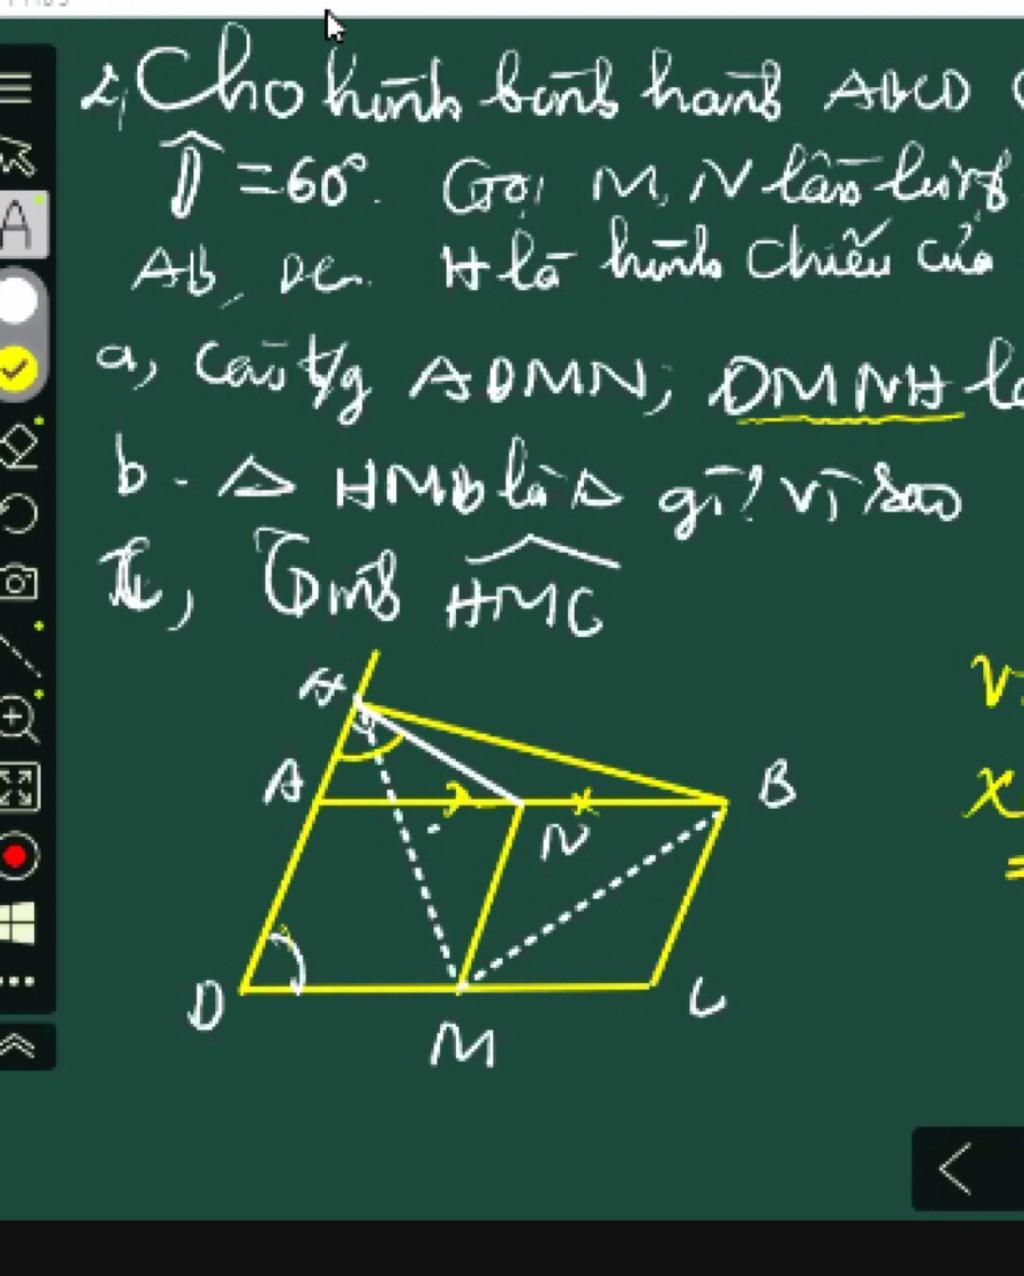 2, Cho hình bình hành ABCD
D̂ = 60°. Gọi M, N lần lượt
AB, DC. H là hình chiếu của
a, Các t/g ADMN; DMNH là
b. Δ HMB là Δ gì? Vì sao
c, Tính HMC
H
A
B
N
D
C
M
V
x
=